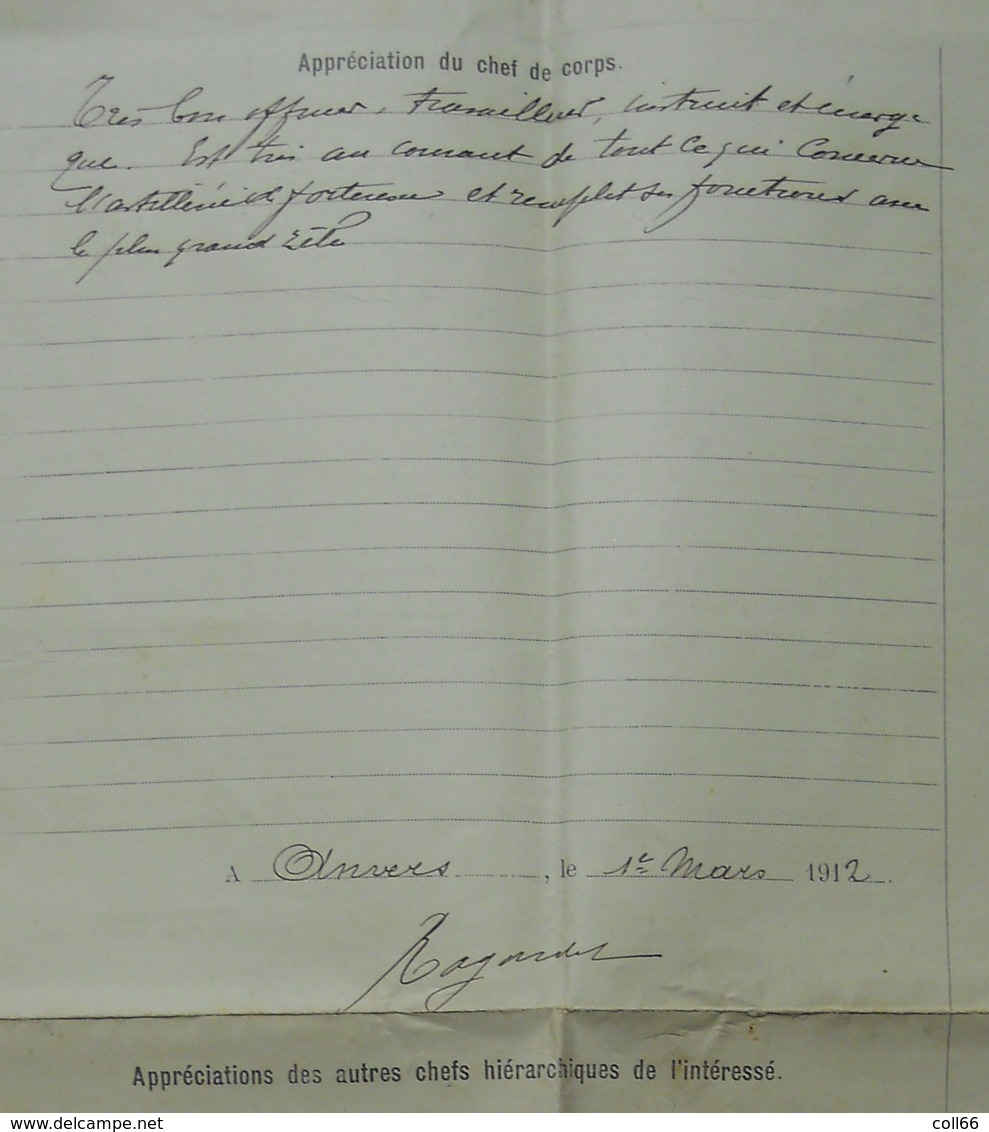 Appréciation du chef de corps.
Très bon officier, travailleur, instruit et énergi
que. Est très au courant de tout ce qui concerne
l'artillerie de forteresse et remplit ses fonctions avec
le plus grand zèle
A Anvers, le 1er Mars 1912.
Appréciations des autres chefs hiérarchiques de l'intéressé.
delcampe.net
coll66